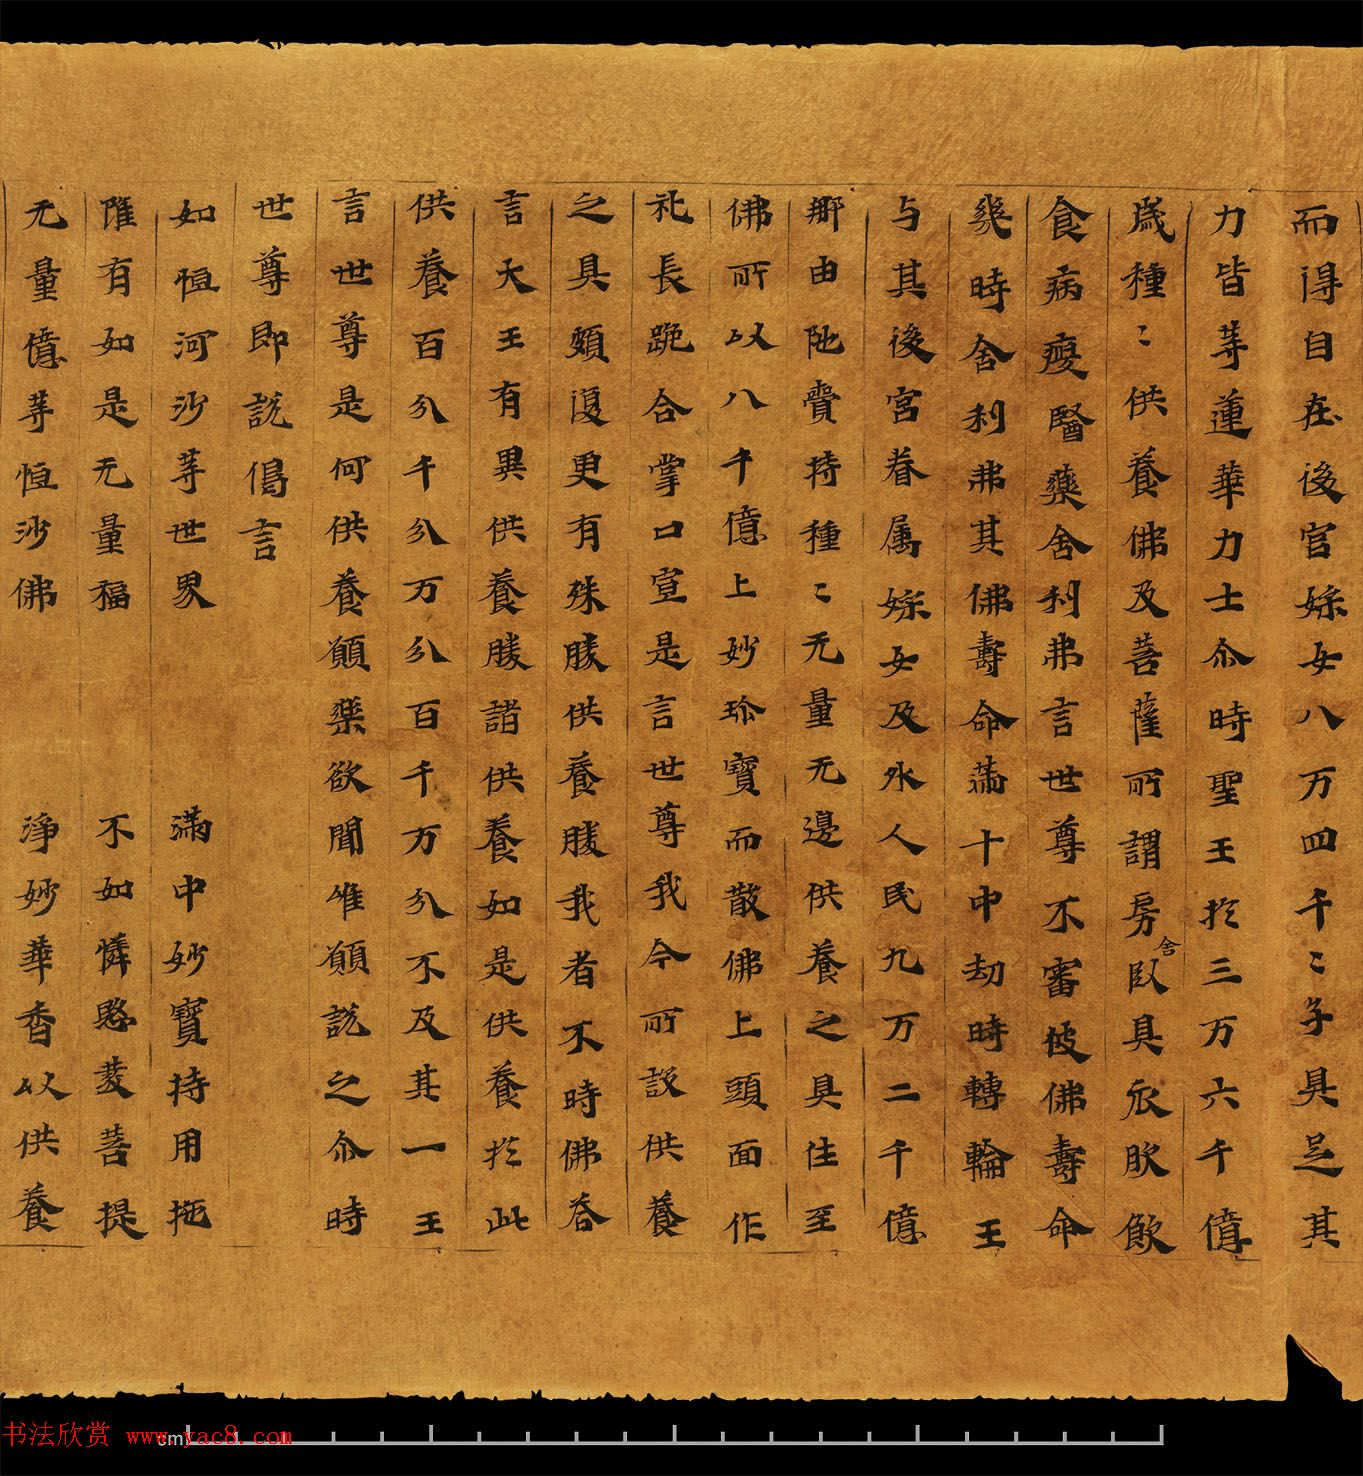 而得自在後官婇女八万四千〻子具足其
力皆等蓮華力士尒時聖王扵三万六千億
歲種〻供養佛及菩薩所謂房舍臥具衣服飲
食病瘦醫藥舍利弗言世尊不審彼佛壽命
幾時舍利弗其佛壽命滿十中劫時轉輪王
与其後宮眷属婇女及外人民九万二千億
那由他賷持種〻无量无邊供養之具往至
佛所以八千億上妙珎寶而散佛上頭面作
礼長跪合掌口宣是言世尊我今所設供養
之具頗復更有殊勝供養勝我者不時佛荅
言大王有異供養勝諸供養如是供養扵此
供養百分千分万分百千万分不及其一王
言世尊是何供養願樂欲聞唯願說之尒時
世尊即說偈言
如恒河沙等世界 滿中妙寶持用施
雖有如是无量福 不如憐愍發菩提
无量億等恒沙佛 淨妙華香以供養
书法欣赏 www.yac8.com
cm